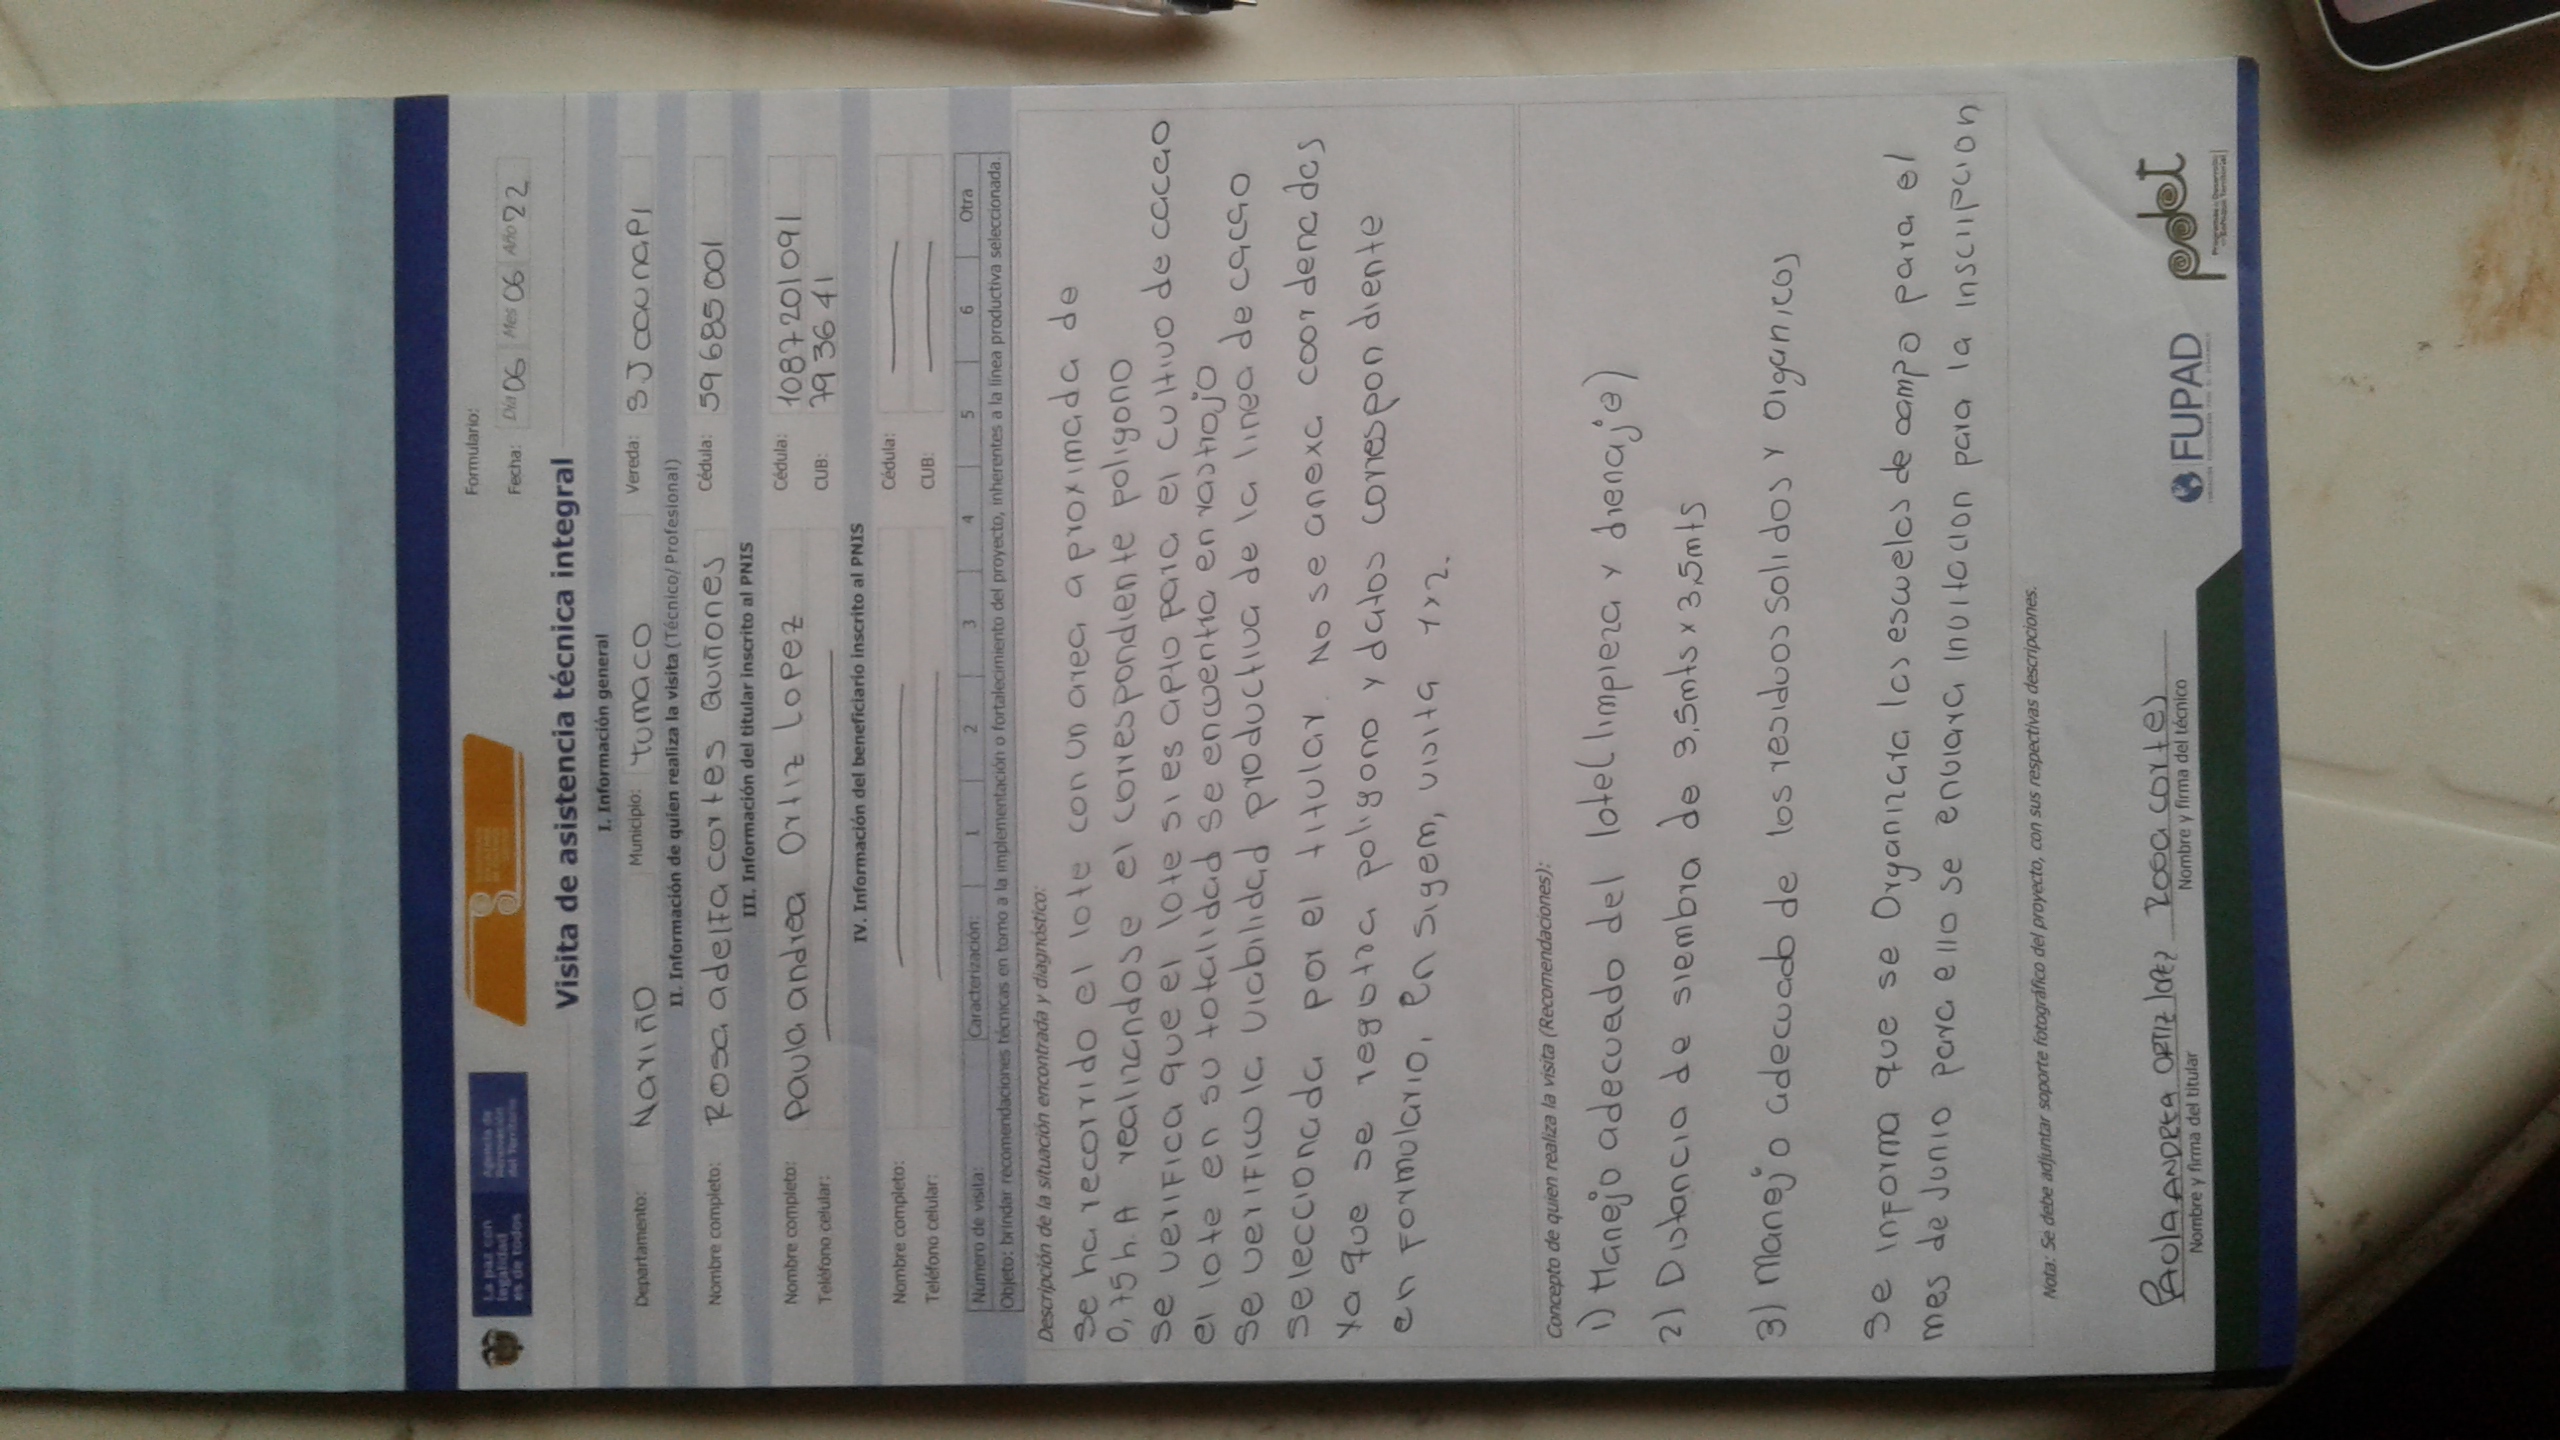 La paz con
legalidad
es de todos
Agencia de
Renovación
del Territorio
Formulario:
Fecha: Día 06 Mes 06 Año 22
Visita de asistencia técnica integral
I. Información general
Departamento: Nariño Municipio: tumaco Vereda: SJ caunapi
II. Información de quien realiza la visita (Técnico/ Profesional)
Nombre completo: Rosa adelfa cortes Quiñones Cédula: 59685001
III. Información del titular inscrito al PNIS
Nombre completo: Paula andrea Ortiz Lopez Cédula: 1087201091
Teléfono celular: CUB: 793641
IV. Información del beneficiario inscrito al PNIS
Nombre completo: Cédula:
Teléfono celular: CUB:
Número de visita: Caracterización: 1 2 3 4 5 6 Otra
Objeto: brindar recomendaciones técnicas en torno a la implementación o fortalecimiento del proyecto, inherentes a la línea productiva seleccionada.
Descripción de la situación encontrada y diagnóstico:
Se ha recorrido el lote con un area aproximada de
0,75 h.A realizandose el correspondiente poligono
Se verifica que el lote si es apto para el cultivo de cacao
el lote en su totalidad se encuentra en rastrojo
Se verifico la viabilidad productiva de la linea de cacao
seleccionada por el titular. No se anexa coordenadas
ya que se registra poligono y datos correspondiente
en formulario, en sigem, visita 1x2.
Concepto de quien realiza la visita (Recomendaciones):
1) Manejo adecuado del lote (limpieza y drenaje)
2) Distancia de siembra de 3.5mts x 3.5mts
3) Manejo adecuado de los residuos solidos y organicos
Se informa que se Organizara las escuelas de campo para el
mes de Junio para ello se enviara invitacion para la inscripcion
Nota: Se debe adjuntar soporte fotográfico del proyecto, con sus respectivas descripciones.
PAOLA ANDREA ORTIZ LOPEZ Rosa cortes
Nombre y firma del titular Nombre y firma del técnico
FUPAD
pdet